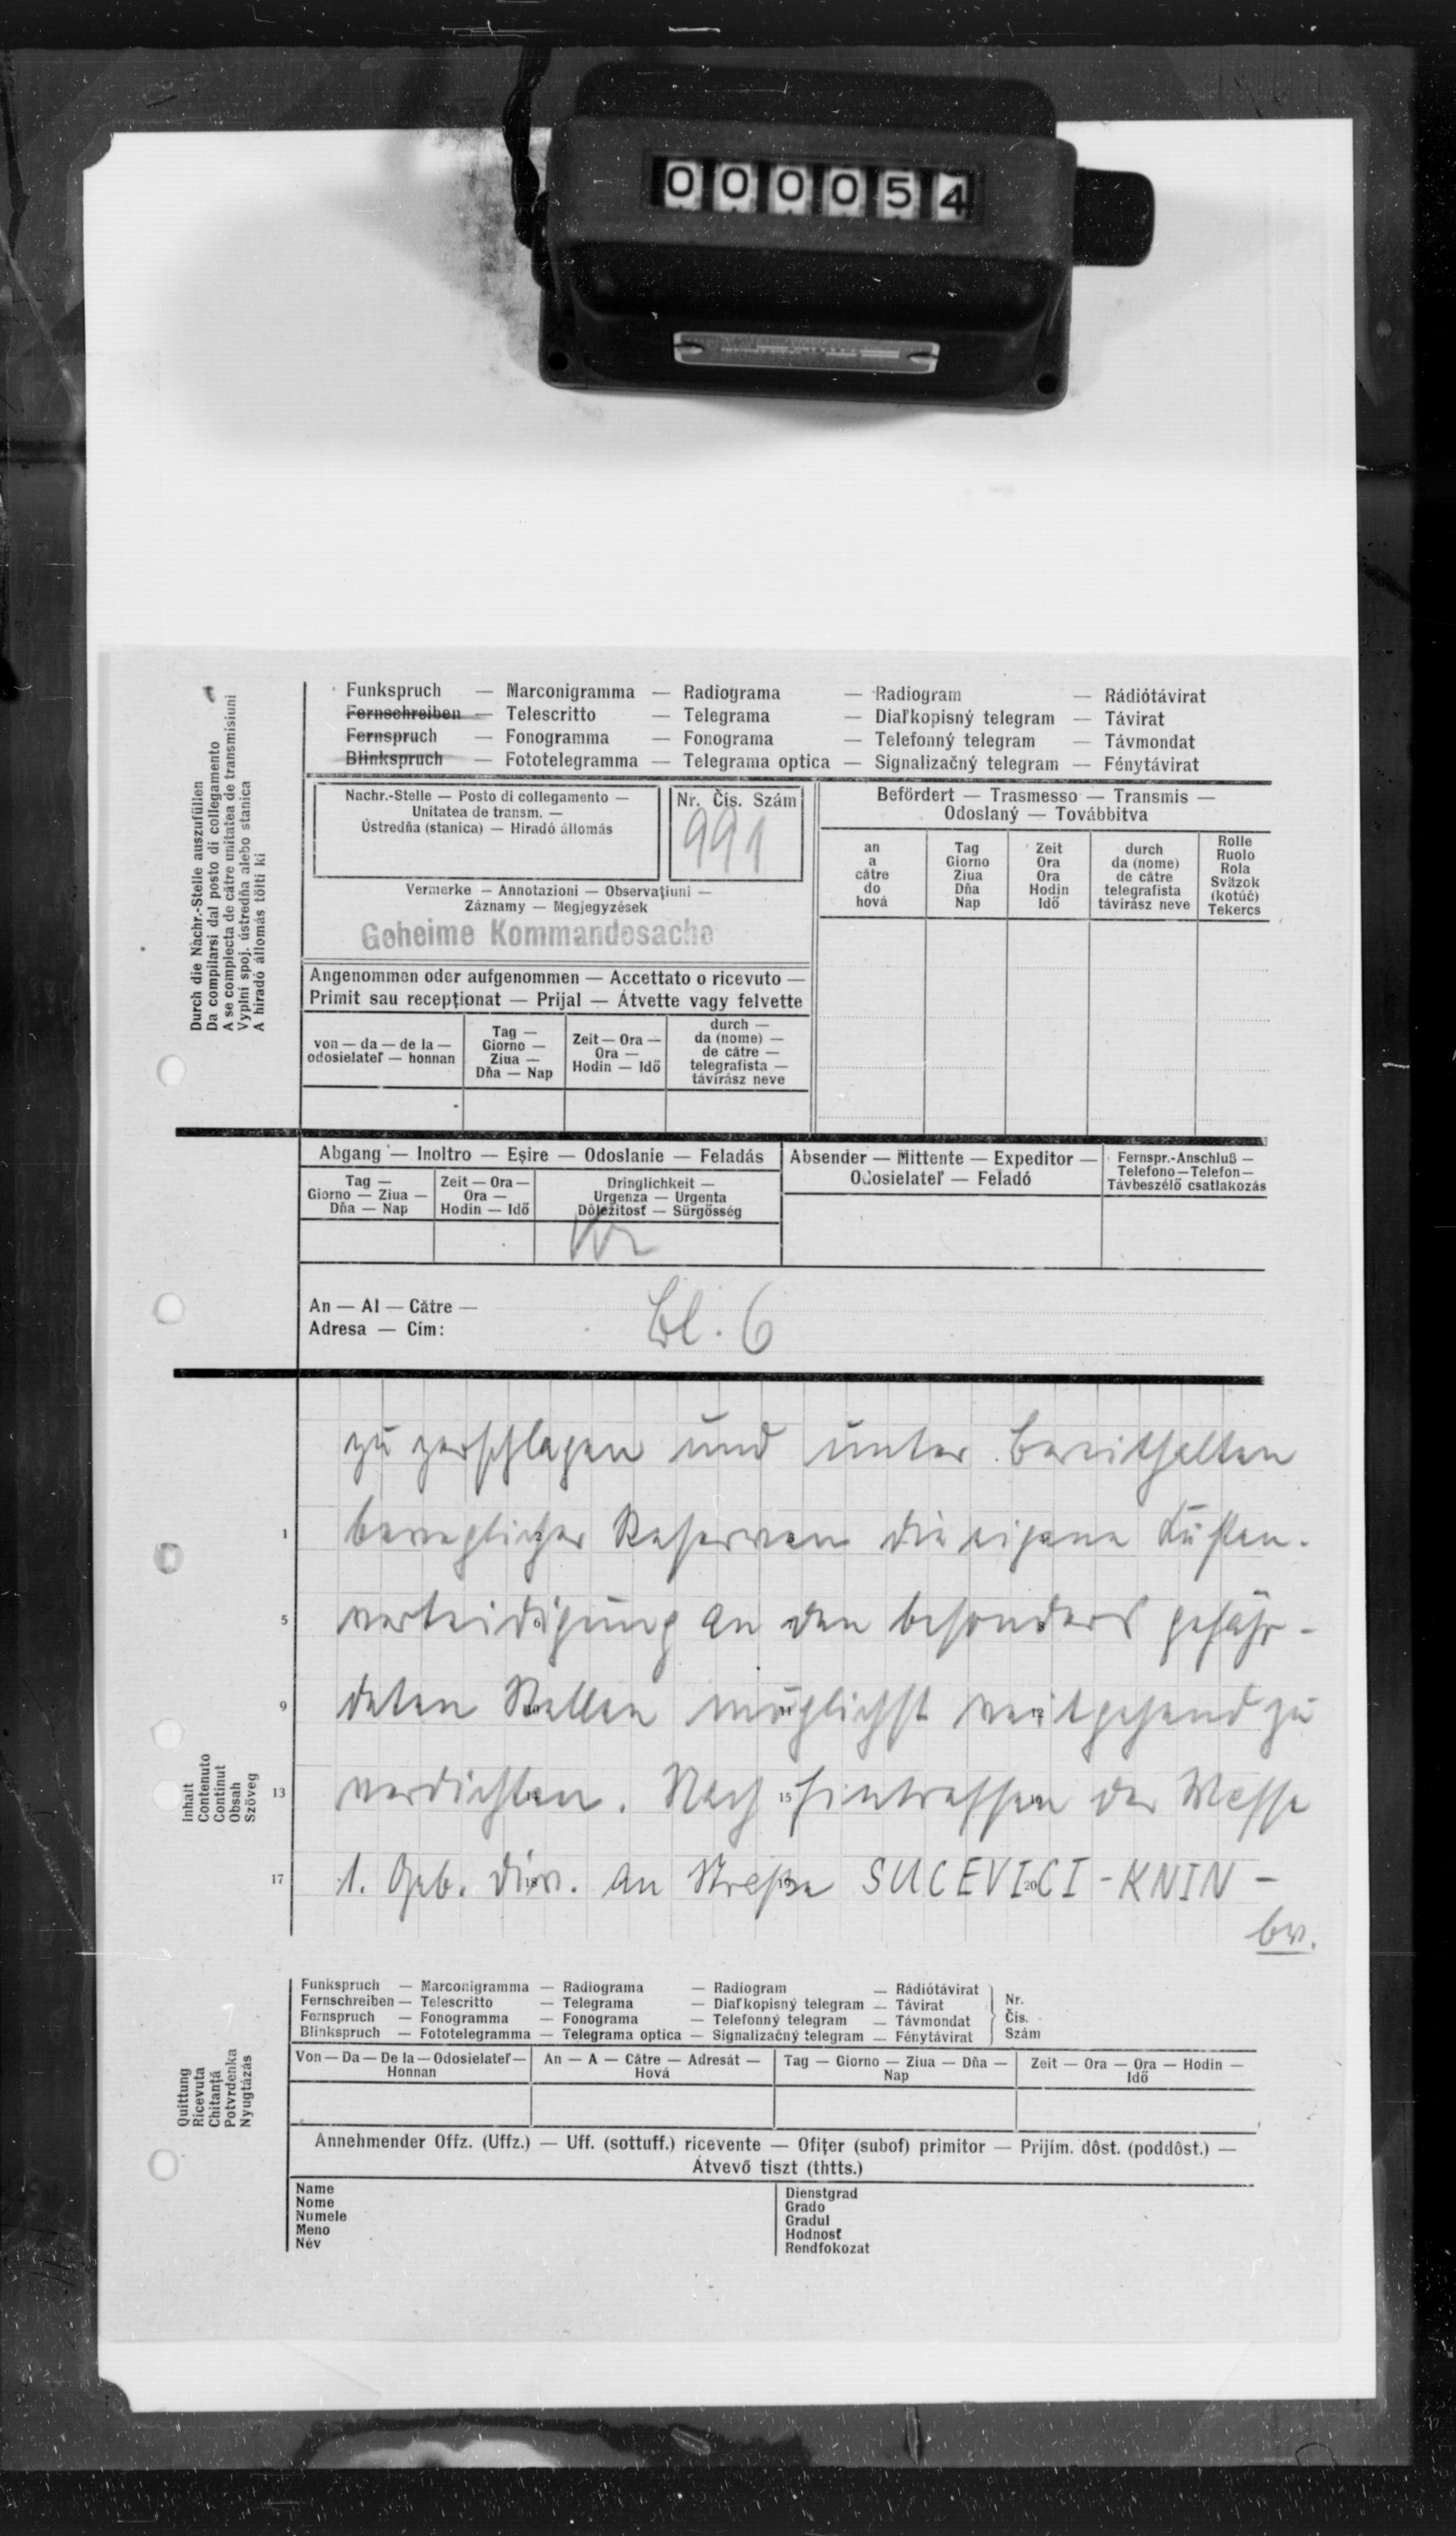 000054
Funkspruch — Marconigramma — Radiograma — Radiogram — Rádiótávirat
Fernschreiben — Telescritto — Telegrama — Diaľkopisný telegram — Távirat
Fernspruch — Fonogramma — Fonograma — Telefonný telegram — Távmondat
Blinkspruch — Fototelegramma — Telegrama optica — Signalizačný telegram — Fénytávirat
Durch die Nachr.-Stelle auszufüllen
Da compilarsi dal posto di collegamento
A se complecta de către unitatea de transmisiuni
Vyplní spoj. ústredňa alebo stanica
A hiradó állomás tölti ki
Nachr.-Stelle — Posto di collegamento —
Unitatea de transm. —
Ústredňa (stanica) — Hiradó állomás
Nr. Čís. Szám
991
Vermerke — Annotazioni — Observațiuni —
Záznamy — Megjegyzések
Geheime Kommandosache
Befördert — Trasmesso — Transmis —
Odoslaný — Továbbitva
an
a
către
do
hová
Tag
Giorno
Ziua
Dňa
Nap
Zeit
Ora
Ora
Hodin
Idő
durch
da (nome)
de către
telegrafista
távirász neve
Rolle
Ruolo
Rola
Sväzok
(kotúč)
Tekercs
Angenommen oder aufgenommen — Accettato o ricevuto —
Primit sau recepționat — Prijal — Átvette vagy felvette
von — da — de la —
odosielateľ — honnan
Tag —
Giorno —
Ziua —
Dňa — Nap
Zeit — Ora —
Ora —
Hodin — Idő
durch —
da (nome) —
de către —
telegrafista —
távirász neve
Abgang — Inoltro — Eşire — Odoslanie — Feladás
Tag —
Giorno — Ziua —
Dňa — Nap
Zeit — Ora —
Ora —
Hodin — Idő
Dringlichkeit —
Urgenza — Urgenta
Dôležitosť — Sürgősség
Absender — Mittente — Expeditor —
Odosielateľ — Feladó
Fernspr.-Anschluß —
Telefono — Telefon —
Távbeszélő csatlakozás
An — Al — Către —
Adresa — Cím:
Bl. 6
Inhalt
Contenuto
Continut
Obsah
Szöveg
zu zerschlagen und unter Bereithalten
1 beweglicher Reserven die eigene Küsten-
5 verteidigung an den besonders gefähr-
9 deten Stellen möglichst weitgehend zu
13 verdichten. Nach 15 Eintreffen der Masse
17 1. Geb. Div. an Straße SUCEVICI 20 - KNIN -
bw.
Funkspruch — Marconigramma — Radiograma — Radiogram — Rádiótávirat
Fernschreiben — Telescritto — Telegrama — Diaľkopisný telegram — Távirat
Fernspruch — Fonogramma — Fonograma — Telefonný telegram — Távmondat
Blinkspruch — Fototelegramma — Telegrama optica — Signalizačný telegram — Fénytávirat
Nr.
Čís.
Szám
Quittung
Ricevuta
Chitanță
Potvrdenka
Nyugtázás
Von — Da — De la — Odosielateľ —
Honnan
An — A — Către — Adresát —
Hová
Tag — Giorno — Ziua — Dňa —
Nap
Zeit — Ora — Ora — Hodin —
Idő
Annehmender Offz. (Uffz.) — Uff. (sottuff.) ricevente — Ofițer (subof) primitor — Prijím. dôst. (poddôst.) —
Átvevő tiszt (thtts.)
Name
Nome
Numele
Meno
Név
Dienstgrad
Grado
Gradul
Hodnosť
Rendfokozat